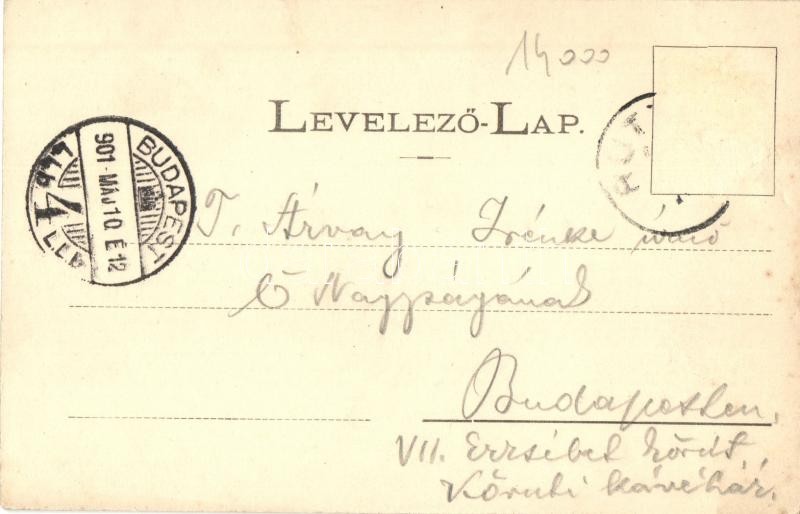 14000
LEVELEZŐ-LAP.
BUDAPEST
901 MÁJ 10 É 12
T. Árvay Irénke
Ő Nagyságának
Budapesten.
VII. Erzsébet körút,
Körúti kávéház.